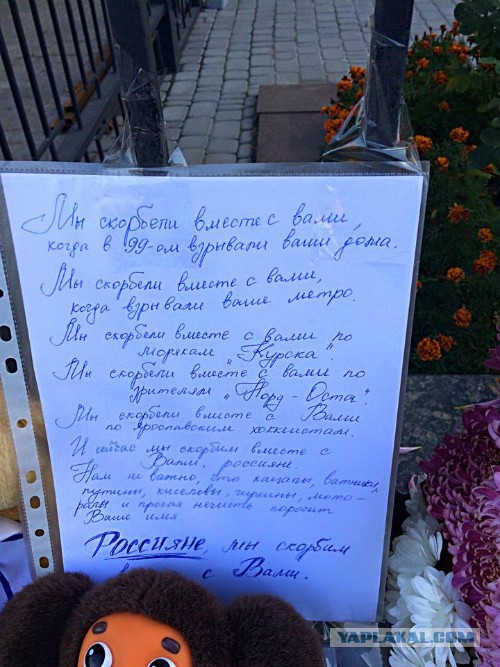 Мы скорбели вместе с вами,
когда в 99-ом взрывали ваши дома.
Мы скорбели вместе с вами,
когда взрывали ваше метро.
Мы скорбели вместе с вами по
морякам "Курска".
Мы скорбели вместе с вами по
зрителям "Норд-Оста".
Мы скорбели вместе с Вами
по ярославским хоккеистам.
И сейчас мы скорбим вместе с
Вами, россияне.
Нам не важно, что кацапы, ватники,
путины, киселевы, гиркины, мото-
ролы и прочая нечисть поросит
Ваше имя
Россияне, мы скорбим
с Вами.
YAPLAKAL.COM